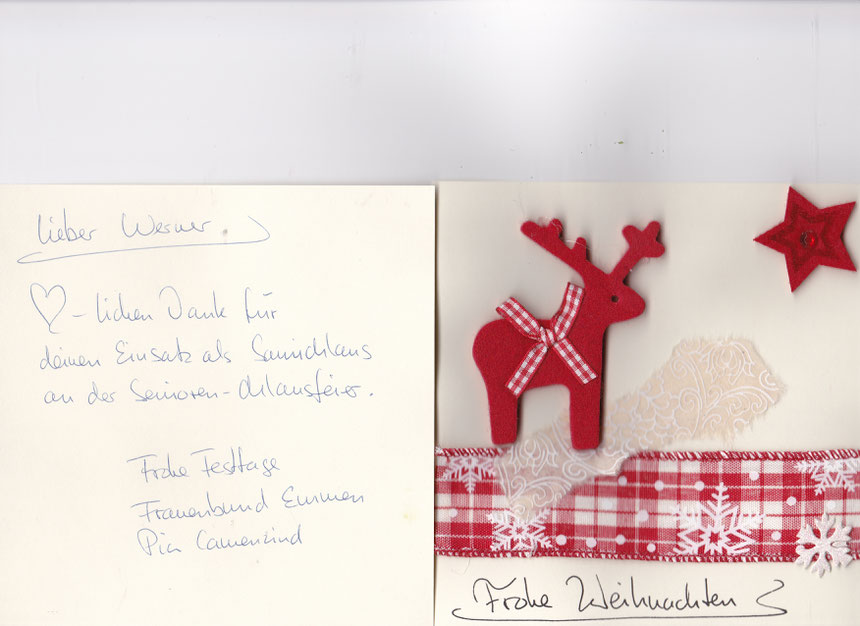 Lieber Werner.
♡-lichen Dank für
deinen Einsatz als Samichlaus
an der Senioren-Chlausfeier.
Frohe Festtage
Frauenbund Emmen
Pia Camenzind
Frohe Weihnachten